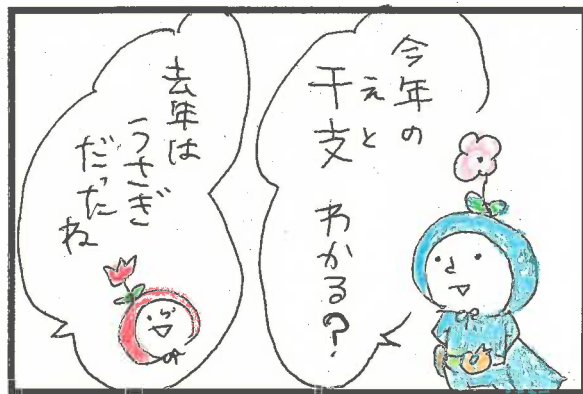 今年の
えと
干支
わかる?
去年は
うさぎ
だったね